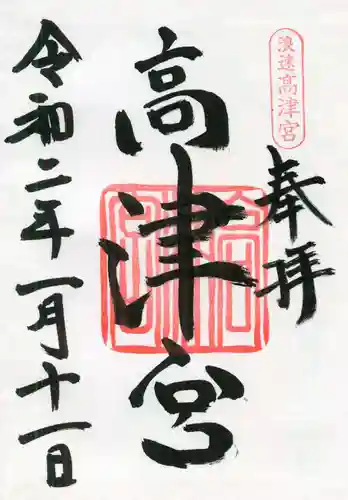 浪速高津宮
奉拝
高津宮
令和二年一月十一日